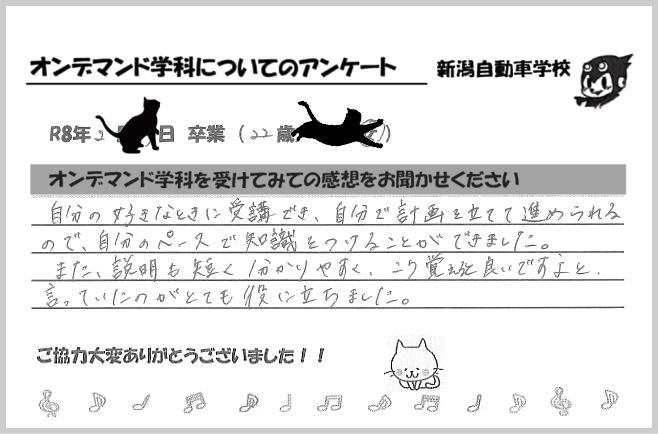 オンデマンド学科についてのアンケート 新潟自動車学校
R8年2月 日 卒業（22歳 女）
オンデマンド学科を受けてみての感想をお聞かせください
自分の好きなときに受講でき、自分で計画を立てて進められる
ので、自分のペースで知識をつけることができました。
また、説明も短く分かりやすく、こう覚えると良いですよと、
言っていたのがとても役に立ちました。
ご協力大変ありがとうございました！！